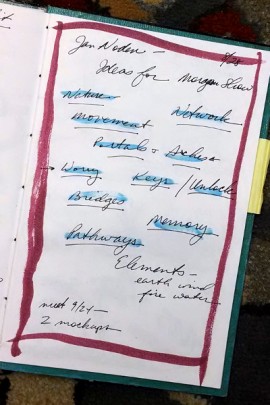 Jan Noden - 8/28
Ideas for Morgan Show
Nature
Network
Movement
Portals + Arches
→ Wong Keys / Unlock
Bridges
Memory
Pathways
Elements -
earth wind
fire water
meet 9/24 -
2 mockups